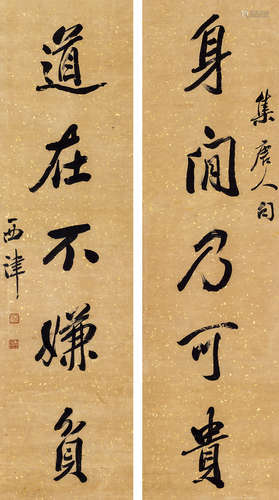 身閒乃可貴
集唐人句
道在不嫌負
西津